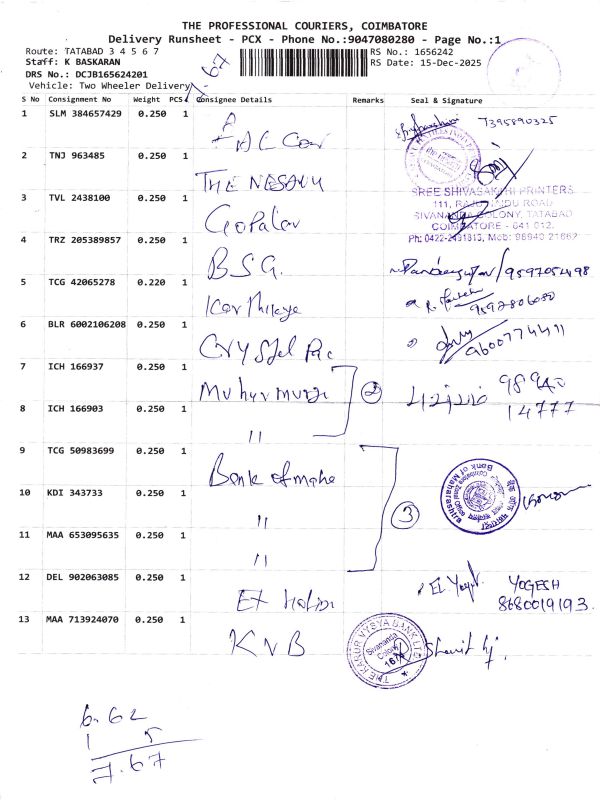 THE PROFESSIONAL COURIERS, COIMBATORE
Delivery Runsheet - PCX - Phone No.:9047080280 - Page No.:1
Route: TATABAD 3 4 5 6 7
RS No.: 1656242
Staff: K BASKARAN
RS Date: 15-Dec-2025
DRS No.: DCJB165624201
Vehicle: Two Wheeler Delivery
S No Consignment No Weight PCS Consignee Details Remarks Seal & Signature
1 SLM 384657429 0.250 1 7395890325
2 TNJ 963485 0.250 1 THE NESAVU
SREE SHIVASAKTHI PRINTERS
111, RAJU NAIDU ROAD
3 TVL 2438100 0.250 1 Gopalav
SIVANANDA COLONY, TATABAD
COIMBATORE - 641 012.
4 TRZ 205389857 0.250 1 B.S.G.
9597054498
5 TCG 42065278 0.220 1
9592806080
6 BLR 6002106208 0.250 1 Crystel Pac
9600774411
7 ICH 166937 0.250 1 2 98940
14777
8 ICH 166903 0.250 1 "
9 TCG 50983699 0.250 1 Bank of mahe
Bank of Maharashtra
10 KDI 343733 0.250 1 " 3
11 MAA 653095635 0.250 1 "
12 DEL 902063085 0.250 1 YOGESH
8680019193
13 MAA 713924070 0.250 1 KVB
THE KARUR VYSYA BANK LTD
Sivananda Colony
6.62
1 5
7.67